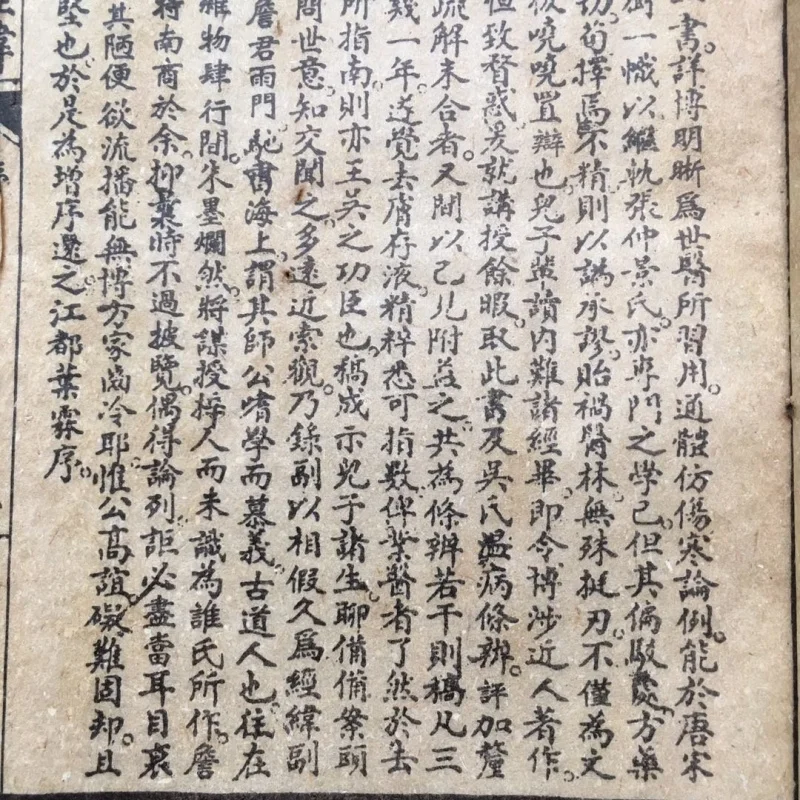 書。詳博明晰爲世醫所習用。通體仿傷寒論例。能於唐宋
樹一幟以繼軌張仲景氏。亦專門之學已。但其偏駁處。方藥
切。苟擇焉不精則以譌承謬。貽禍醫林。無殊挺刃。不僅為文
嘵嘵置辯也。兒子輩讀內難諸經畢。即令博涉近人著作。
但致瞀惑。爰就講授餘暇。取此書及吳氏溫病條辨。評加釐
疏解未合者。又間以己見附益之。共為條辨若干則。稿凡三
幾一年。遂覺去膚存液。精粹悉可指數。俾業醫者了然於去
所指南。則亦王吳之功臣也。稿成示兒子諸生。聊備備案頭
問世意。知交聞之。多遠近索觀。乃錄副以相假。久爲經緯副
詹君雨門。馳書海上。謂其師公嗜學而慕義。古道人也。往在
雜物肆行間。朱墨爛然。將謀授梓人而未識為誰氏所作。詹
南商於余。抑曩時不過披覽。偶得論列。詎必盡當耳目。衷
其陋便欲流播。能無博方家齒冷耶。惟公高誼。礙難固却。且
堅也。於是為增序還之。江都葉霖序。